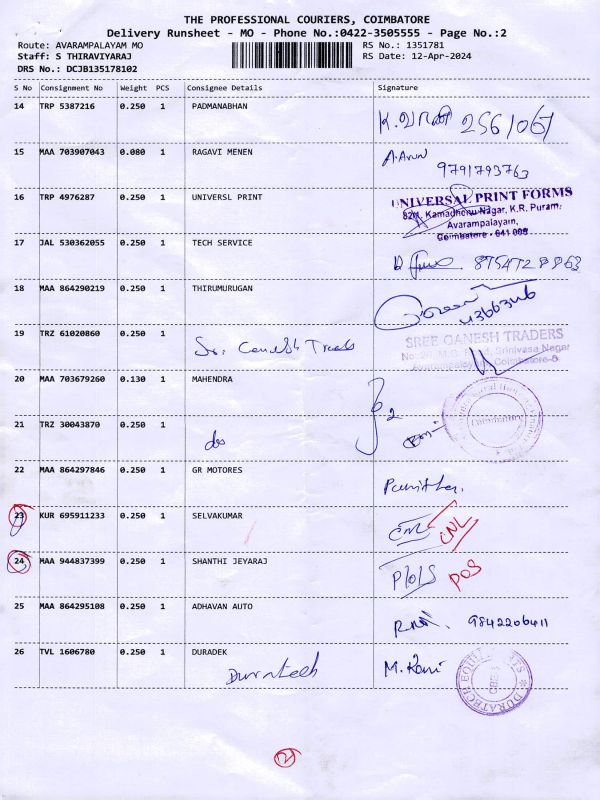 THE PROFESSIONAL COURIERS, COIMBATORE
Delivery Runsheet - MO - Phone No.:0422-3505555 - Page No.:2
Route: AVARAMPALAYAM MO RS No.: 1351781
Staff: S THIRAVIYARAJ RS Date: 12-Apr-2024
DRS No.: DCJB135178102
S No Consignment No Weight PCS Consignee Details Signature
14 TRP 5387216 0.250 1 PADMANABHAN
15 MAA 703907043 0.080 1 RAGAVI MENEN A.Arun
9791793763
16 TRP 4976287 0.250 1 UNIVERSL PRINT UNIVERSAL PRINT FORMS
82/1, Kamadhenu Nagar, K.R. Puram,
Avarampalayam,
Coimbatore - 641 006
17 JAL 530362055 0.250 1 TECH SERVICE
18 MAA 864290219 0.250 1 THIRUMURUGAN
19 TRZ 61020860 0.250 1 SREE GANESH TRADERS
Srinivasa Nagar
Avarampalayam, Coimbatore-6.
20 MAA 703679260 0.130 1 MAHENDRA
Coimbatore
21 TRZ 30043870 0.250 1
do
22 MAA 864297846 0.250 1 GR MOTORES
23 KUR 695911233 0.250 1 SELVAKUMAR CNL CNL
24 MAA 944837399 0.250 1 SHANTHI JEYARAJ P/O/S POS
25 MAA 864295108 0.250 1 ADHAVAN AUTO 9842206411
26 TVL 1606780 0.250 1 DURADEK M. Rani
Duratech
12